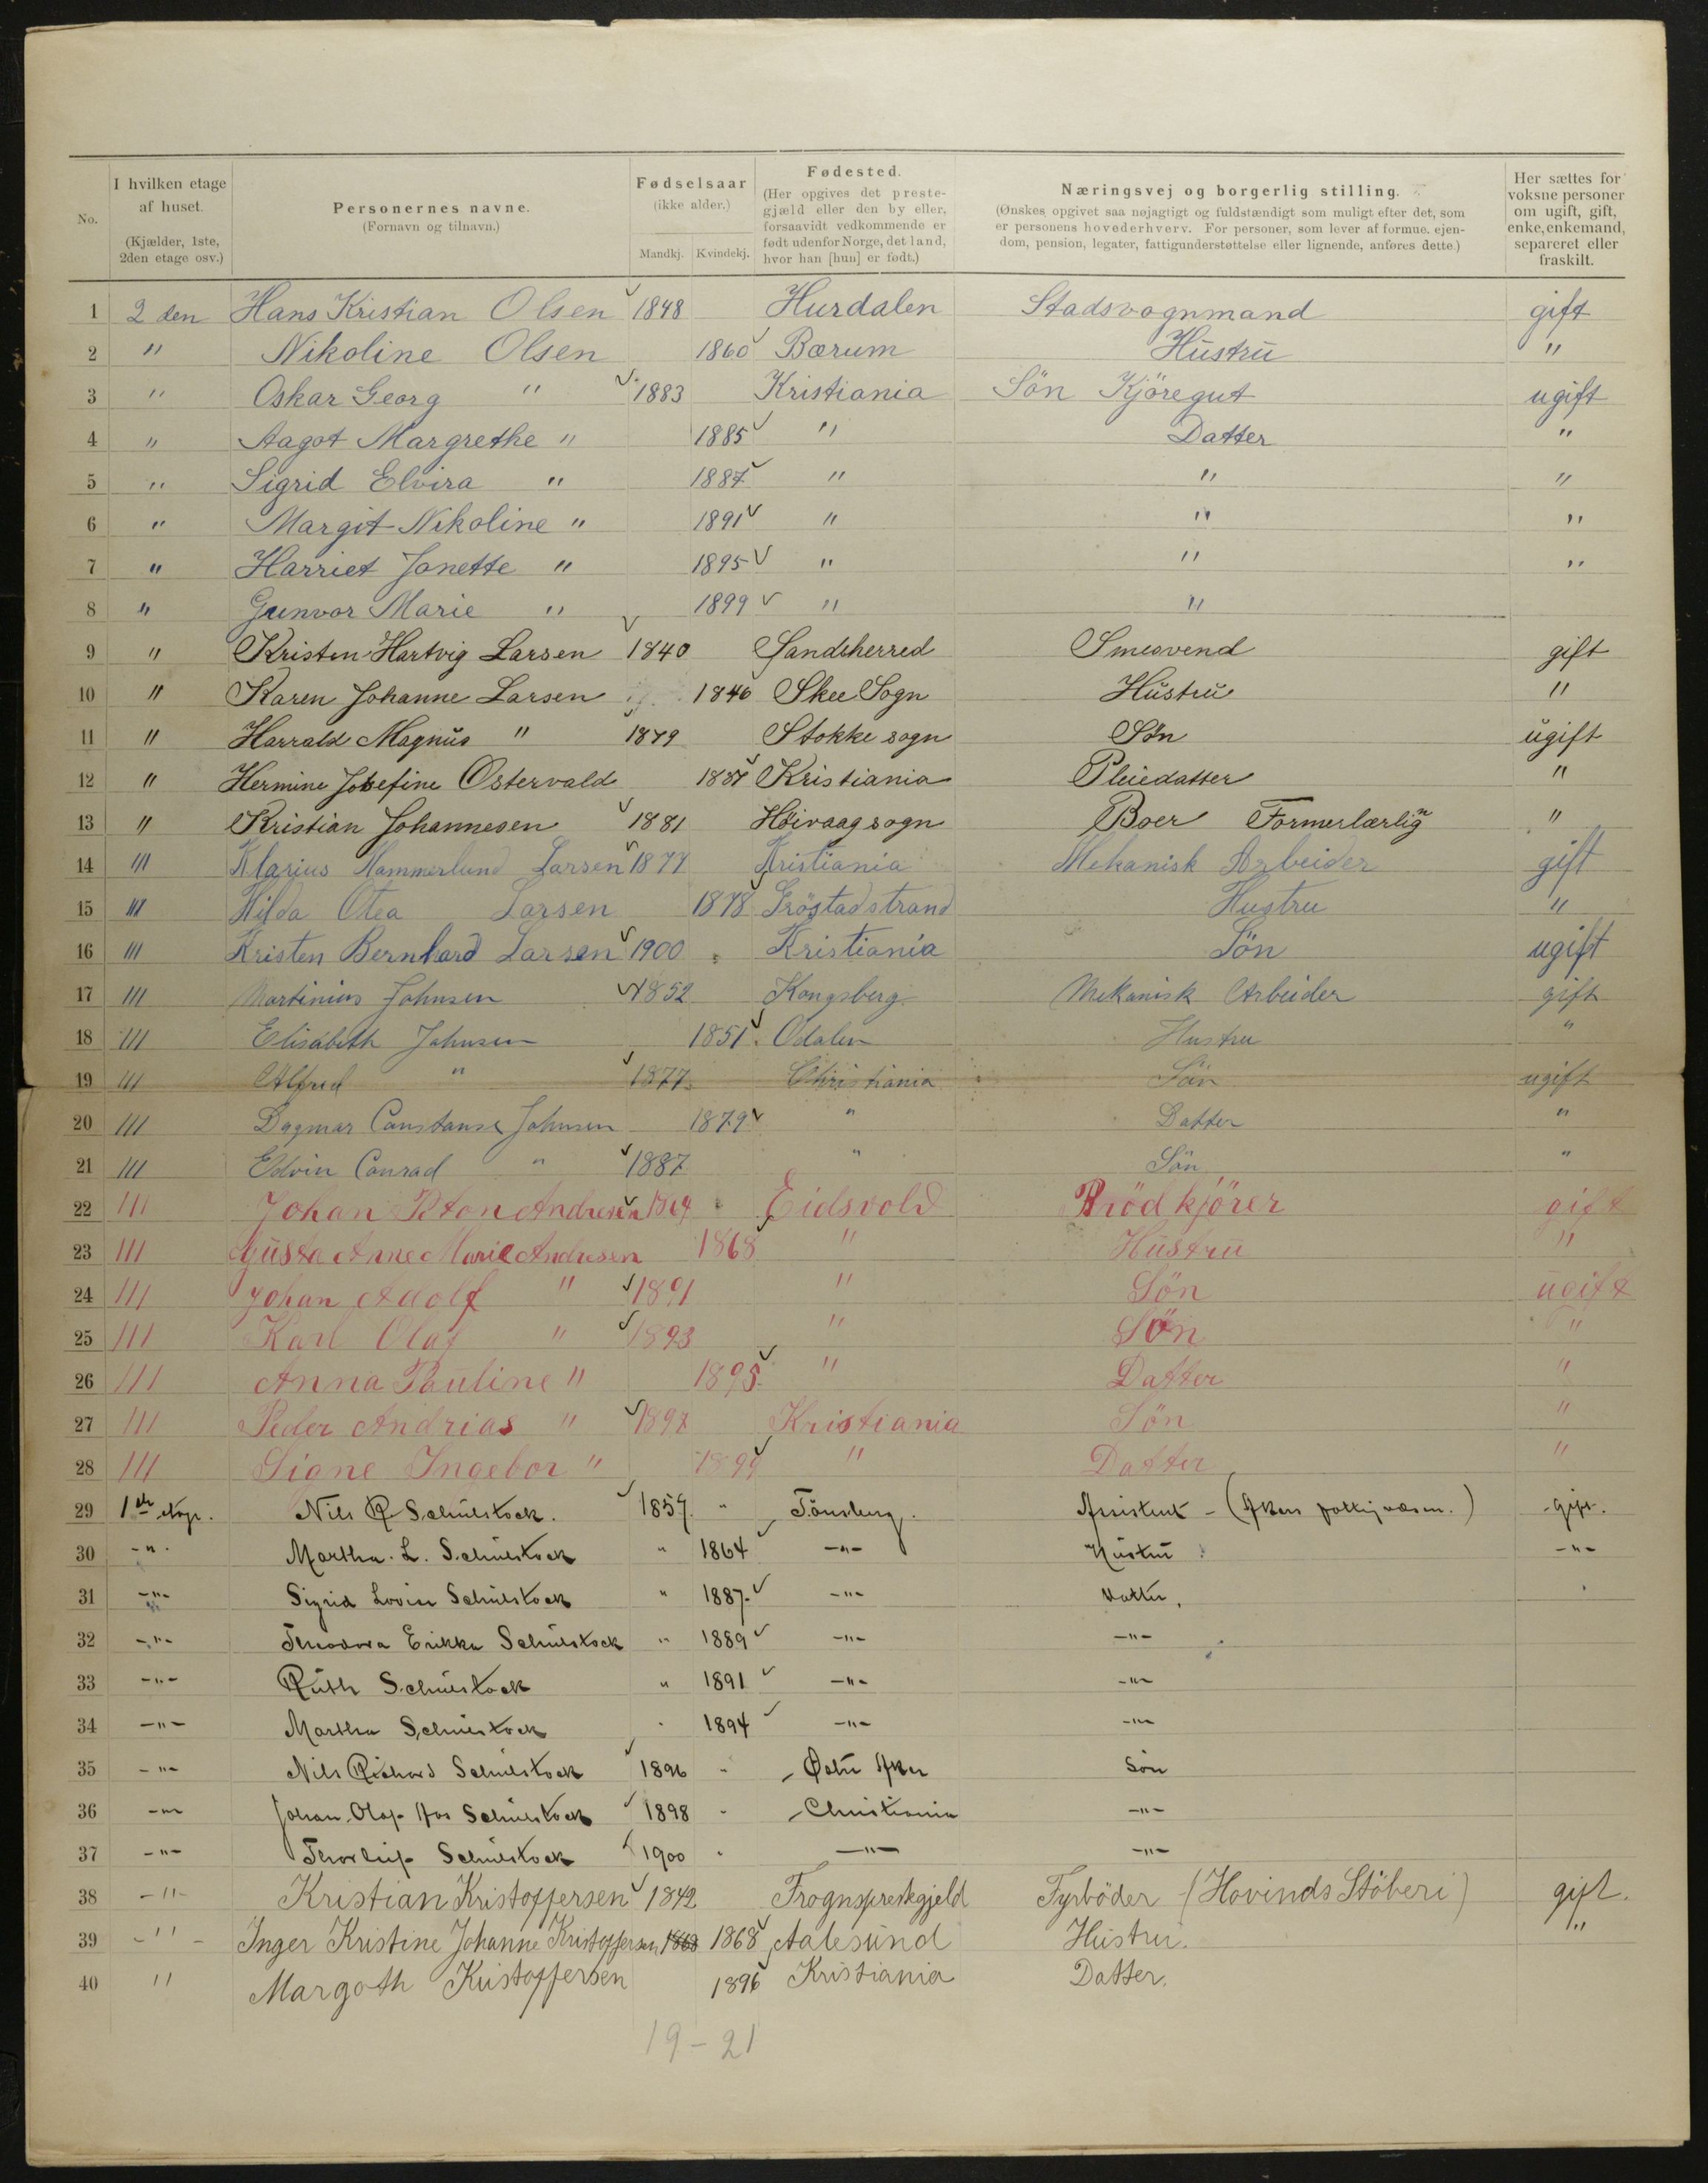 No.
I hvilken etage af huset. (Kjælder, 1ste, 2den etage osv.)
Personernes navne. (Fornavn og tilnavn.)
Fødselsaar (ikke alder.) Mandkj. Kvindekj.
Fødested. (Her opgives det prestegjæld eller den by eller, forsaavidt vedkommende er født udenfor Norge, det land, hvor han [hun] er født.)
Næringsvej og borgerlig stilling. (Ønskes opgivet saa nøjagtigt og fuldstændigt som muligt efter det, som er personens hovederhverv. For personer, som lever af formue, ejendom, pension, legater, fattigunderstøttelse eller lignende, anføres dette.)
Her sættes for voksne personer om ugift, gift, enke, enkemand, separeret eller fraskilt.
1 2 den Hans Kristian Olsen 1848 Hurdalen Stadsvognmand gift
2 " Nikoline Olsen 1860 Bærum Hustru "
3 " Oskar Georg " 1883 Kristiania Sön Kjöregut ugift
4 " Aagot Margrethe " 1885 " Datter "
5 " Sigrid Elvira " 1887 " " "
6 " Margit Nikoline " 1891 " " "
7 " Harriet Janette " 1895 " " "
8 " Gunvor Marie " 1899 " "
9 " Kristen Hartvig Larsen 1840 Sandsherred Smesvend gift
10 " Karen Johanne Larsen 1846 Skee Sogn Hustru "
11 " Harrald Magnus " 1879 Stokke sogn Søn ugift
12 " Hermine Josefine Ostervald 1887 Kristiania Pleiedatter "
13 " Kristian Johannesen 1881 Høivaag sogn Boer Formerlærling "
14 III Klarius Hammerlund Larsen 1877 Kristiania Mekanisk Arbeider gift
15 III Hilda Otea Larsen 1878 Hustru "
16 III Kristen Bernhard Larsen 1900 Kristiania Sön ugift
17 III Martinius Johnsen 1852 Kongsberg Mekanisk Arbeider gift
18 III Elisabeth Johnsen 1851 Odalen Hustru "
19 III Alfred " 1877 Christiania Sön ugift
20 III Dagmar Constanse Johnsen 1879 " Datter "
21 III Edvin Conrad " 1887 " Sön "
22 III Johan Andresen 1864 Eidsvold Brödkjörer gift
23 III Gusta Anne Marie Andresen 1868 " Hustru "
24 III Johan Adolf " 1891 " Sön ugift
25 III Karl Olaf " 1893 " Sön "
26 III Anna Pauline " 1895 " Datter "
27 III Peder Andrias " 1897 Kristiania Sön "
28 III Signe Ingebor " 1899 " Datter "
29 1ste etage. Nils R Schulstock. 1857 " Tönsberg. Assistent - (Akers fattigvæsen.) gift.
30 -"- Martha. L. Schulstock " 1864 -"- Hustru -"-
31 -"- Sigrid Lovise Schulstock " 1887 -"- Datter.
32 -"- Theodora Erikka Schulstock " 1889 -"- -"-
33 -"- Ruth Schulstock " 1891 -"- -"-
34 -"- Martha Schulstock 1894 -"- -"-
35 -"- Nils Richard Schulstock 1896 " Østre Aker Sön
36 -"- Johan Olaf Schulstock 1898 Christiania -"-
37 -"- Thorleif Schulstock 1900 -"- -"-
38 -"- Kristian Kristoffersen 1842 Frognspreskgjeld Fyrböder (Hovinds Stöberi) gift.
39 -"- Inger Kristine Johanne Kristoffersen 1868 1868 Aalesund Hustru. "
40 " Margoth Kristoffersen 1896 Kristiania Datter.
19-21